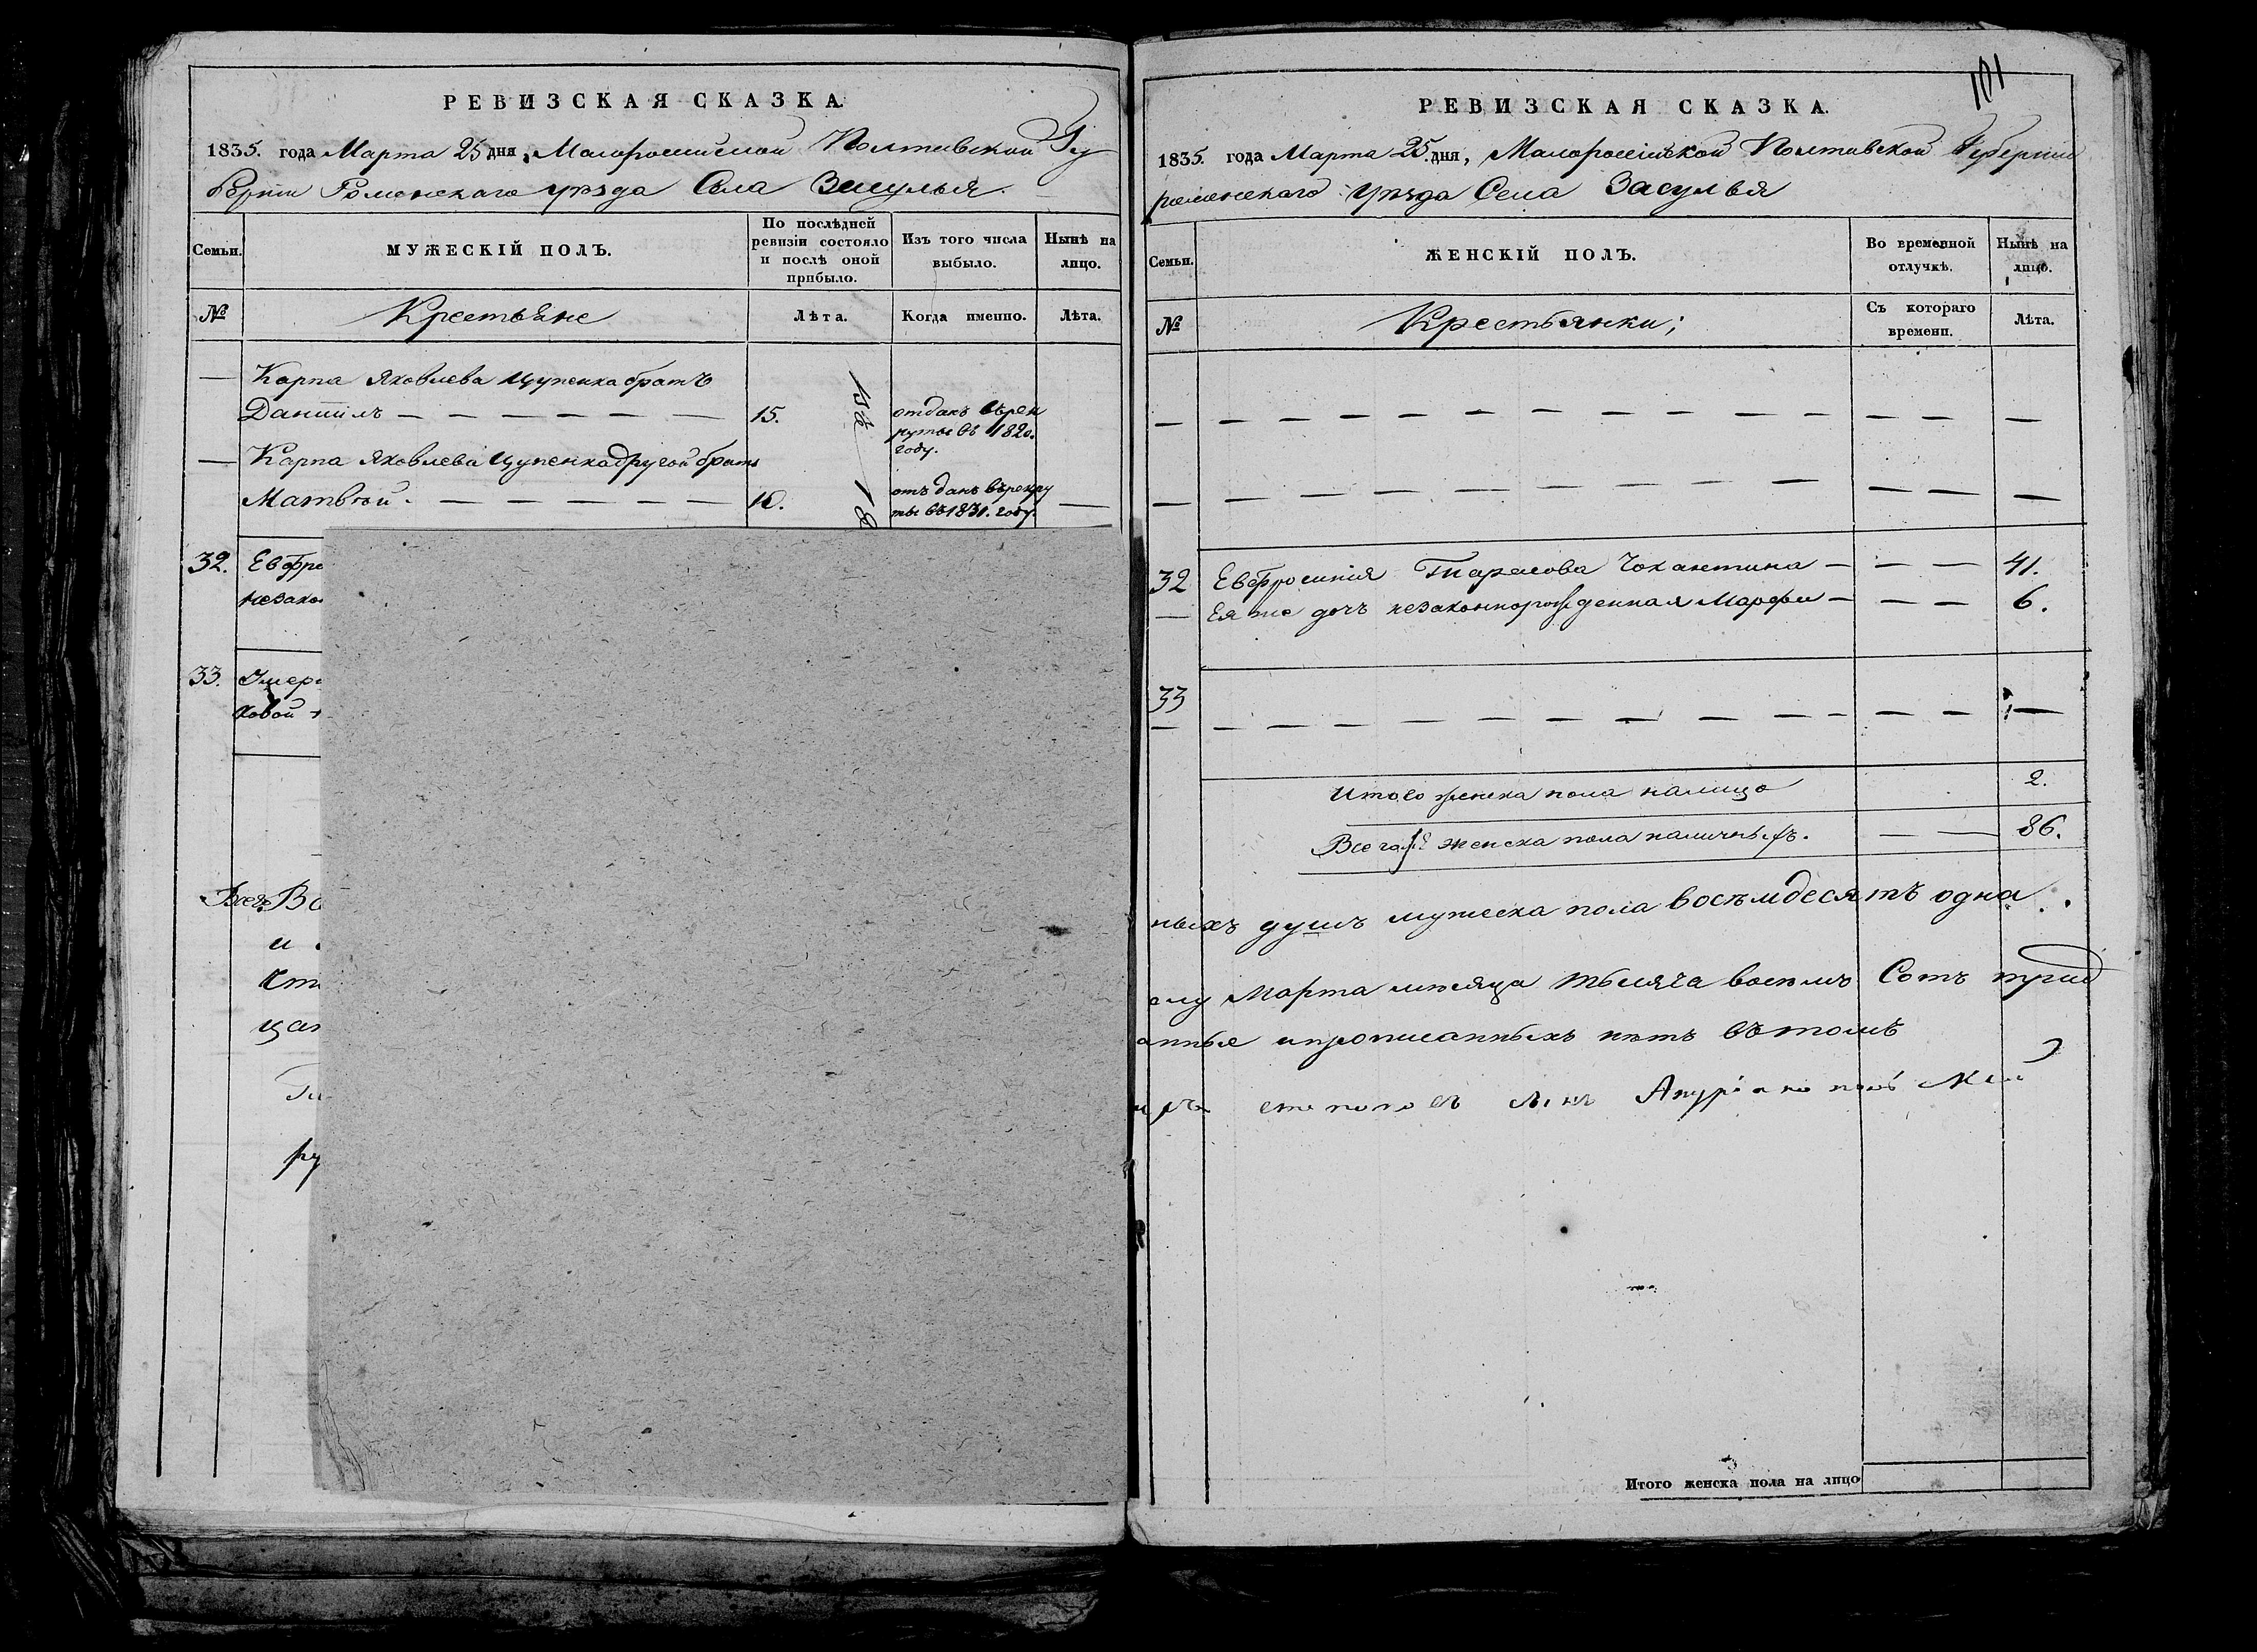 РЕВИЗСКАЯ СКАЗКА
1835. года Марта 25 дня, Малороссійской Полтавской Гу
берніи Роменскаго уѣзда Села Засулья.
Семьи.
МУЖЕСКІЙ ПОЛЪ.
По послѣдней ревизіи состояло и послѣ оной прибыло.
Изъ того числа выбыло.
Нынѣ на лицо.
№
Крестьяне
Лѣта.
Когда именно.
Лѣта.
Карпа Яковлева Цупенка братъ
Даніилъ 15. отданъ вѣрек
руты въ 1820.
году.
Карпа Яковлева Цупенка другой братъ
Матвѣй 10. отъданъ вѣрекру
ты въ 1831. году.
32. Евфро
незако
33. Умер
ховой
Всего
и
цат
ру
101
РЕВИЗСКАЯ СКАЗКА.
1835. года Марта 25. дня, Малороссійской Полтавской Губерніи
роменскаго уѣзда Села Засулья
Семьи.
ЖЕНСКІЙ ПОЛЪ.
Во временной отлучкѣ.
Нынѣ на лицо.
№
Крестьянки;
Съ котораго времени.
Лѣта.
32 Евфросинія Тарасова 41.
Ея же дочъ незаконнорожденная Марфа 6.
33
Итого женска пола налицо 2.
Всего женска пола наличныхъ. 86.
ныхъ душъ мужеска пола восѣмдесятъ одна
Марта месяца тысяча восѣмъ Сотъ трид
прописанныхъ нѣтъ вѣтомъ
Итого женска пола на лицо